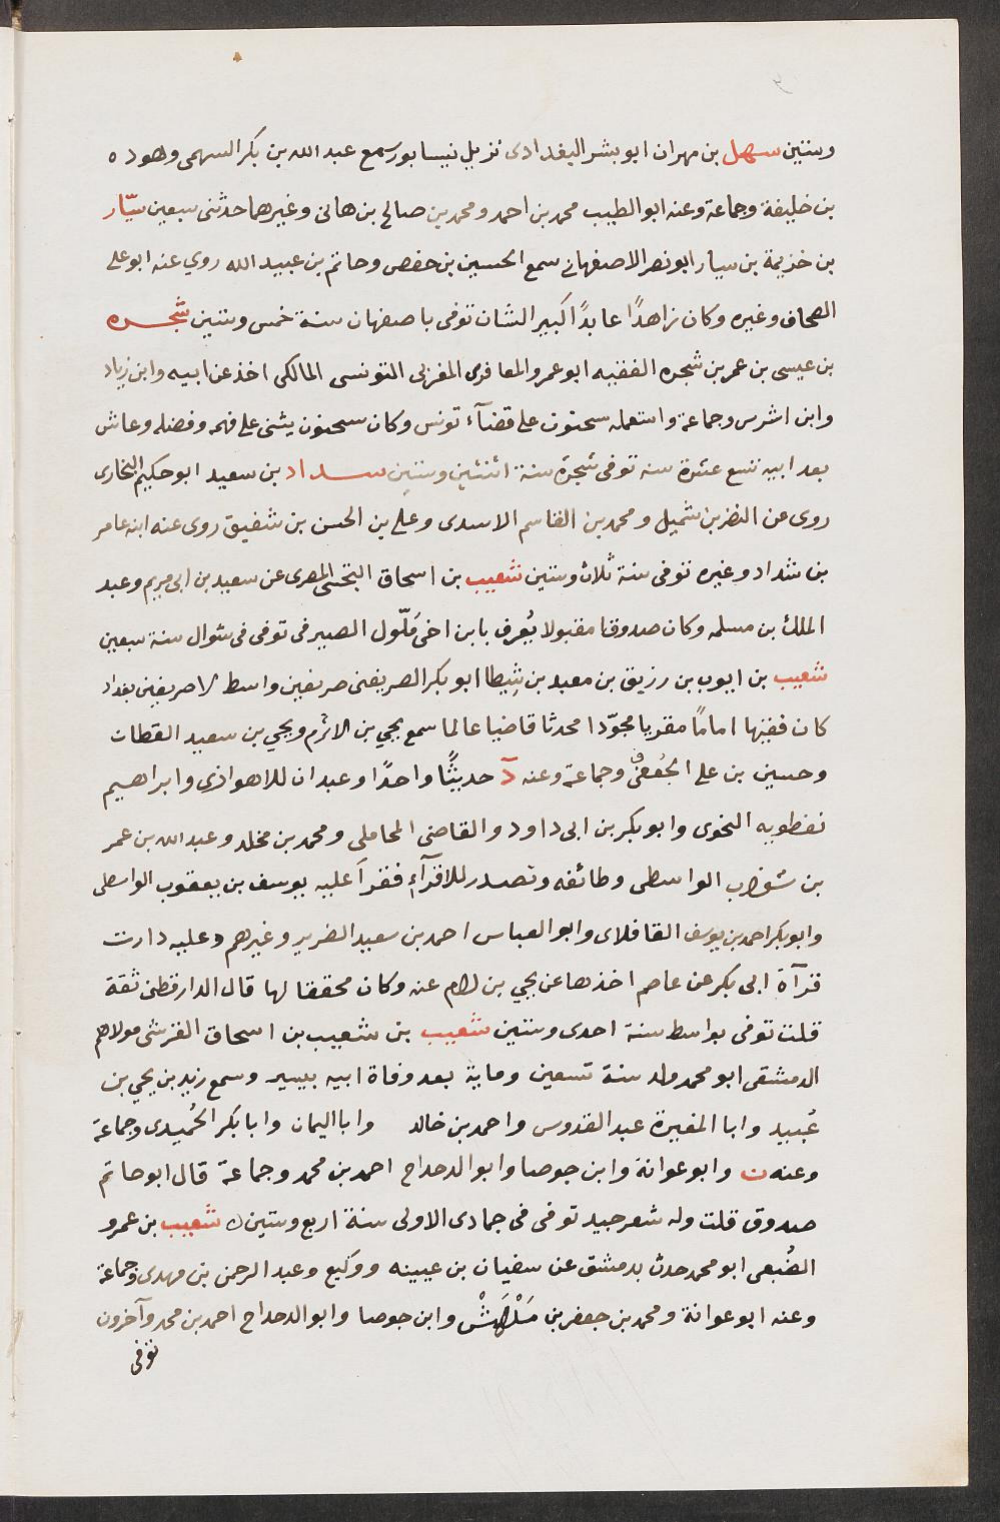 وستين سهل بن مهران ابو بشر البغدادى نزيل نيسابور سمع عبد الله بن بكر السهمى وهوده
بن خليفة وجماعة وعنه ابو الطيب محمد بن احمد ومحمد بن صالح بن هانى وغيرهما حدثنى سبعين سيّار
بن خزيمة بن سيار ابو نصر الاصفهانى سمع الحسين بن حفص وحاتم بن عبيد الله روي عنه ابو على
الصحاف وغيره وكان زاهدًا عابدًا كبير الشان توفى باصفهان سنة خمس وستين شجره
بن عيسى بن عمر بن شجره الفقيه ابو عمرو المعافرى المغربى التونسى المالكى اخذ عن ابيه وابن زياد
وابن اشرس وجماعة واستعمله سحنون على قضآء تونس وكان سحنون يثنى على فهمه وفضله وعاش
بعد ابيه تسع عشرة سنه توفى شجرة سنة اثنتين وستين سداد بن سعيد ابو حكيم البخارى
روى عن النضر بن شميل ومحمد بن القاسم الاسدى وعلى بن الحسن بن شفيق روى عنه ابنه عامر
بن شداد وغيره توفى سنة ثلاث وستين شعيب بن اسحاق التجيبى المصرى عن سعيد بن ابى مريم وعبد
الملك بن مسلمه وكان صدوقا مقبولا يُعرف بابن اخى مَلّول الصيرفى توفى فى شوال سنة سبعين
شعيب بن ايوب بن رزيق بن معبد بن شِيطا ابو بكر الصريفنى صريفين واسط لا صريفين بغداد
كان فقيها امامًا مقريا مجوّدا محدثا قاضيا عالما سمع يحي بن الاثرم ويحي بن سعيد القطان
وحسين بن على الجُعفى وجماعة وعنه دَ حديثًا واحدًا وعبدان للاهوازى وابراهيم
نفطويه النحوى وابو بكر بن ابى داود والقاضى المحاملى ومحمد بن مخلد وعبد الله بن عمر
بن شوذب الواسطى وطائفه وتصدر للاقرآء فقرأ عليه يوسف بن يعقوب الواسطى
وابو بكر احمد بن يوسف القافلاى وابو العباس احمد بن سعيد الضرير وغيرهم وعليه دارت
قرآة ابى بكر عن عاصم اخذها عن يحي بن ادم عنه وكان محققا لها قال الدارقطنى ثقة
قلت توفى بواسط سنة احدى وستين شعيب بن شعيب بن اسحاق القرشى مولاهم
الدمشقى ابو محمد ولد سنة تسعين وماية بعد وفاة ابيه بيسير وسمع زيد بن يحي بن
عُبيد وابا المغيرة عبد القدوس واحمد بن خالد وابا اليمان وابا بكر الحُميدى وجماعة
وعنه ن وابو عوانة وابن جوصا وابو الدحداح احمد بن محمد وجماعة قال ابو حاتم
صدوق قلت وله شعر جيد توفى فى جمادى الاولى سنة اربع وستين شعيب بن عمرو
الضُبعى ابو محمد حدث بدمشق عن سفيان بن عيينه ووكيع وعبد الرحمن بن مهدى وجماعة
وعنه ابو عوانة ومحمد بن جعفر بن مَلاس وابن جوصا وابو الدحداح احمد بن محمد وآخرون
توفى